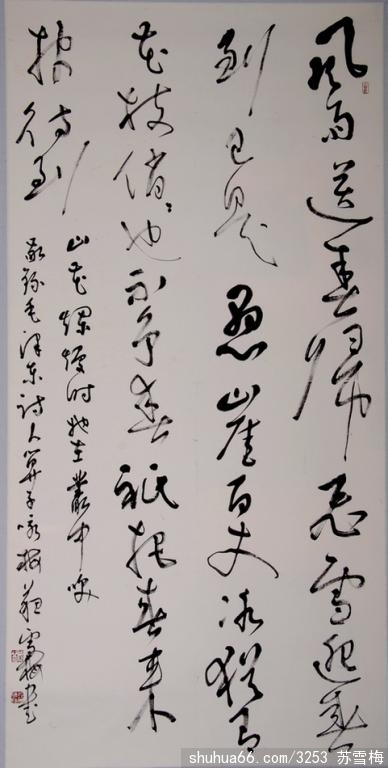 风雨送春归飞雪迎春
到已是悬崖百丈冰犹有
花枝俏〻也不争春祇把春来
报待到
山花烂熳时她在叢中笑
敬录毛泽东诗卜算子咏梅苏雪梅书
shuhua66.com/3253 苏雪梅